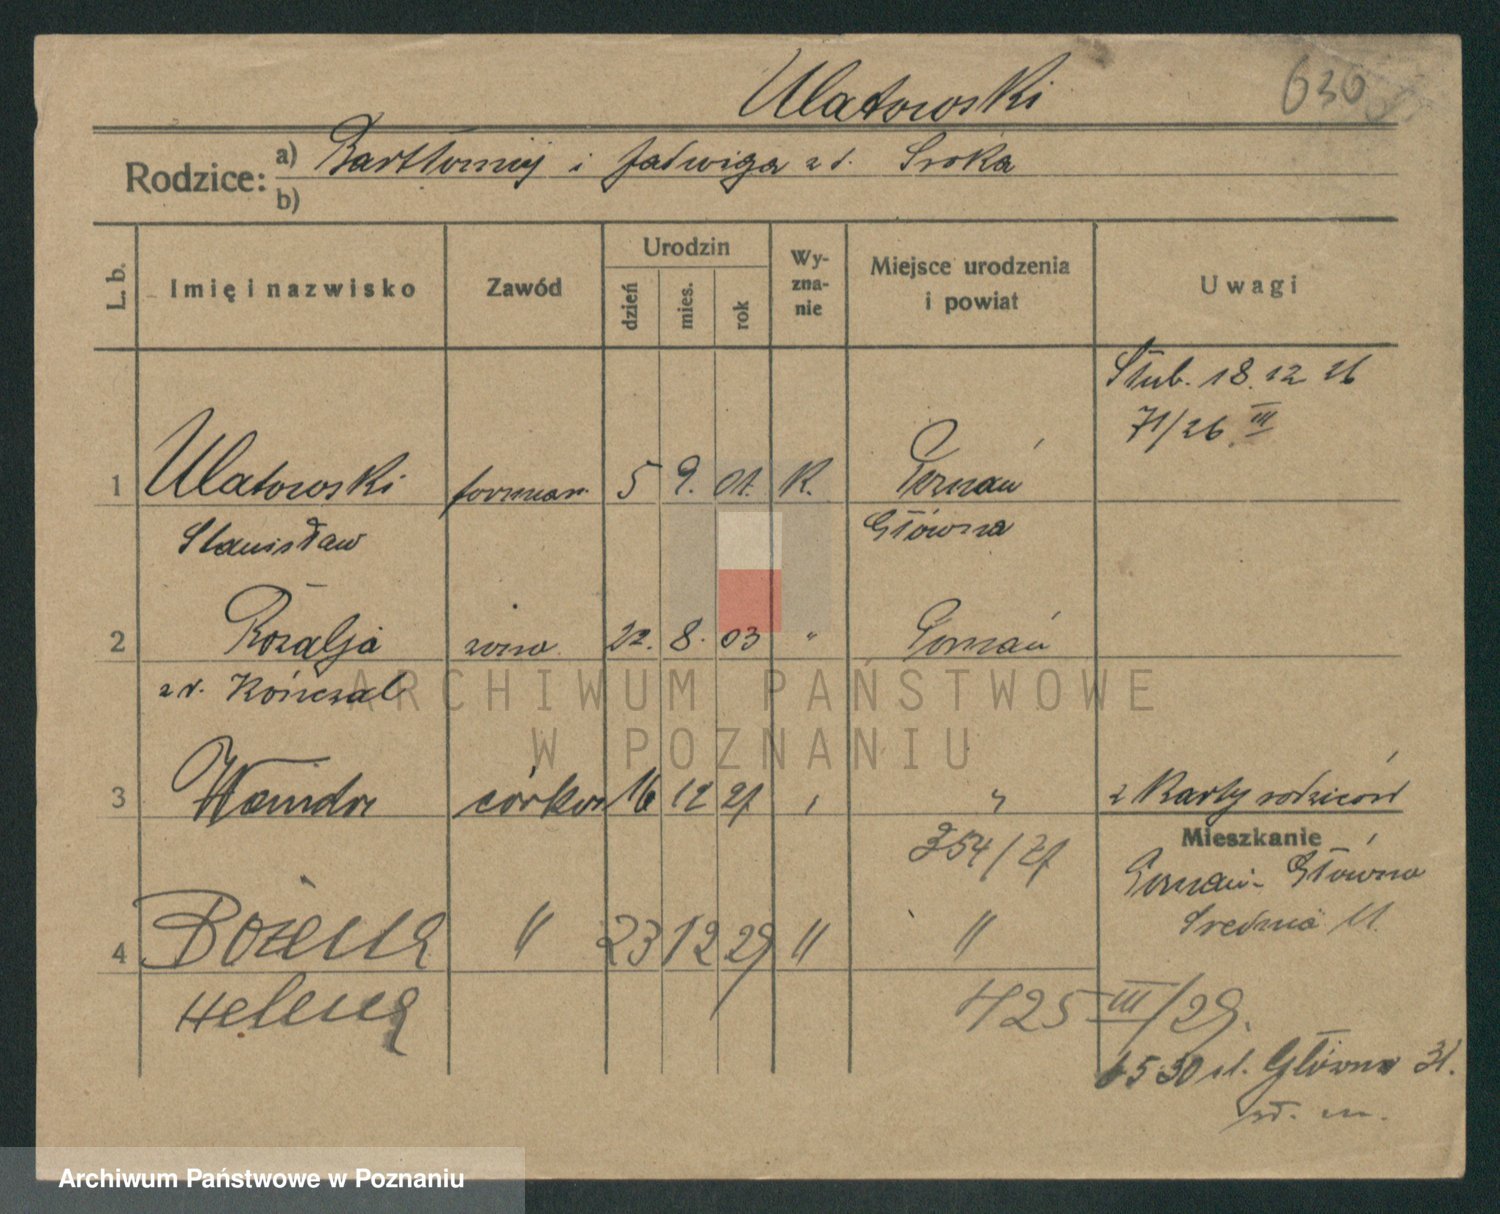 Ulatowski
630
Rodzice: a) Bartłomiej i Jadwiga z d. Sroka
b)
L. b. Imię i nazwisko Zawód Urodzin dzień mies. rok Wyznanie Miejsce urodzenia i powiat Uwagi
Ślub. 18.12 26
71/26 III
1 Ulatowski forman 5 9. 01. R. Poznań
Stanisław Główna
2 Rozalja żona 22. 8. 03 " Poznań
z d. Kończal
ARCHIWUM PAŃSTWOWE
W POZNANIU
3 Wanda córka 16 12 27 " " z Karty rodziców
354/27
Mieszkanie
Poznań-Główna
Średnia 11.
4 Bożena " 23 12 29 " "
Helena
425 III/29.
6 5 30 ul. Główna 31.
Archiwum Państwowe w Poznaniu